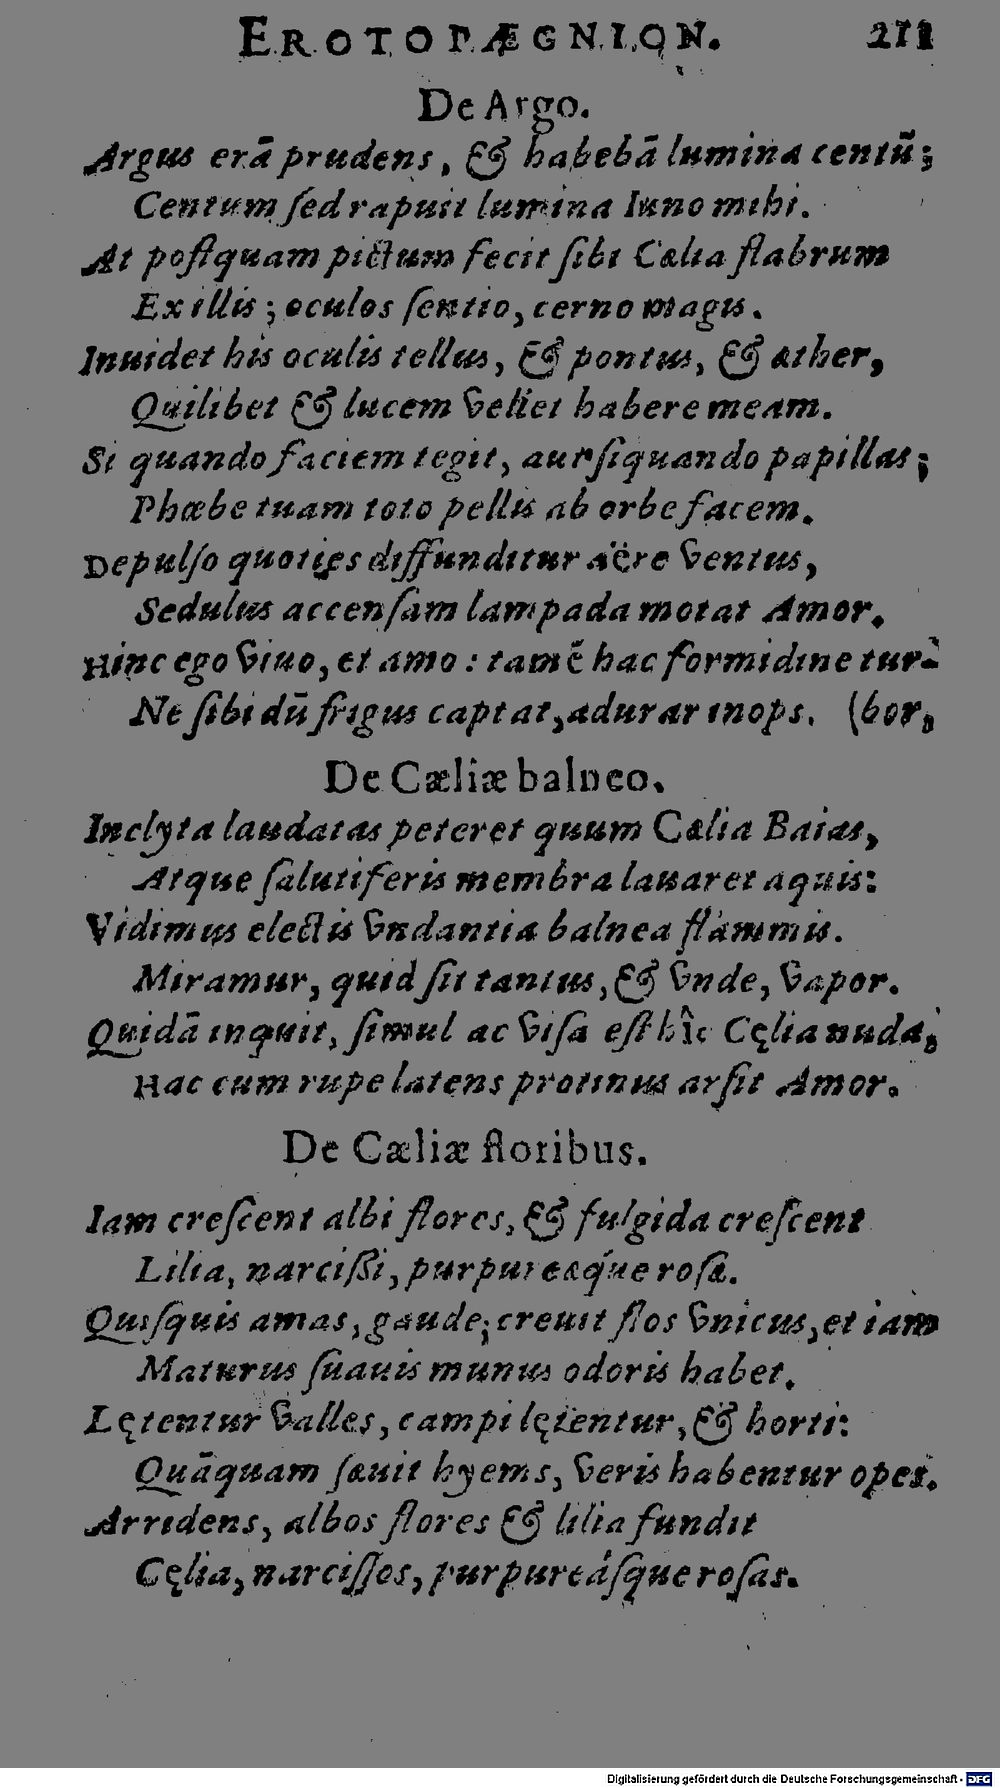 EROTOPÆGNION. 271
De Argo.
Argus erā prudens, & habebā lumina centū;
Centum ſed rapuit lumina Iuno mihi.
At poſtquam pictum fecit ſibi Cælia flabrum
Ex illis; oculos ſentio, cerno magis.
Inuidet his oculis tellus, & pontus, & æther,
Quilibet & lucem vellet habere meam.
Si quando faciem tegit, aut ſiquando papillas;
Phœbe tuam toto pellis ab orbe facem.
Depulſo quoties diffunditur aëre ventus,
Sedulus accenſam lampada motat Amor.
Hinc ego viuo, et amo: tamē hac formidine tur-
Ne ſibi dū frigus captat, adurar inops. (bor,
De Cæliæ balneo.
Inclyta laudatas peteret quum Cælia Baias,
Atque ſalutiferis membra lauaret aquis:
Vidimus electis vndantia balnea flammis.
Miramur, quid ſit tantus, & vnde, vapor.
Quidā inquit, ſimul ac viſa eſt hîc Cęlia nuda,
Hac cum rupe latens protinus arſit Amor.
De Cæliæ floribus.
Iam creſcent albi flores, & fulgida creſcent
Lilia, narciſſi, purpureæq́ue roſæ.
Quiſquis amas, gaude; creuit flos vnicus, et iam
Maturus ſuauis munus odoris habet.
Lętentur valles, campi lętentur, & horti:
Quāquam ſæuit hyems, veris habentur opes.
Arridens, albos flores & lilia fundit
Cęlia, narciſſos, purpureáſque roſas.
Digitalisierung gefördert durch die Deutsche Forschungsgemeinschaft - DFG